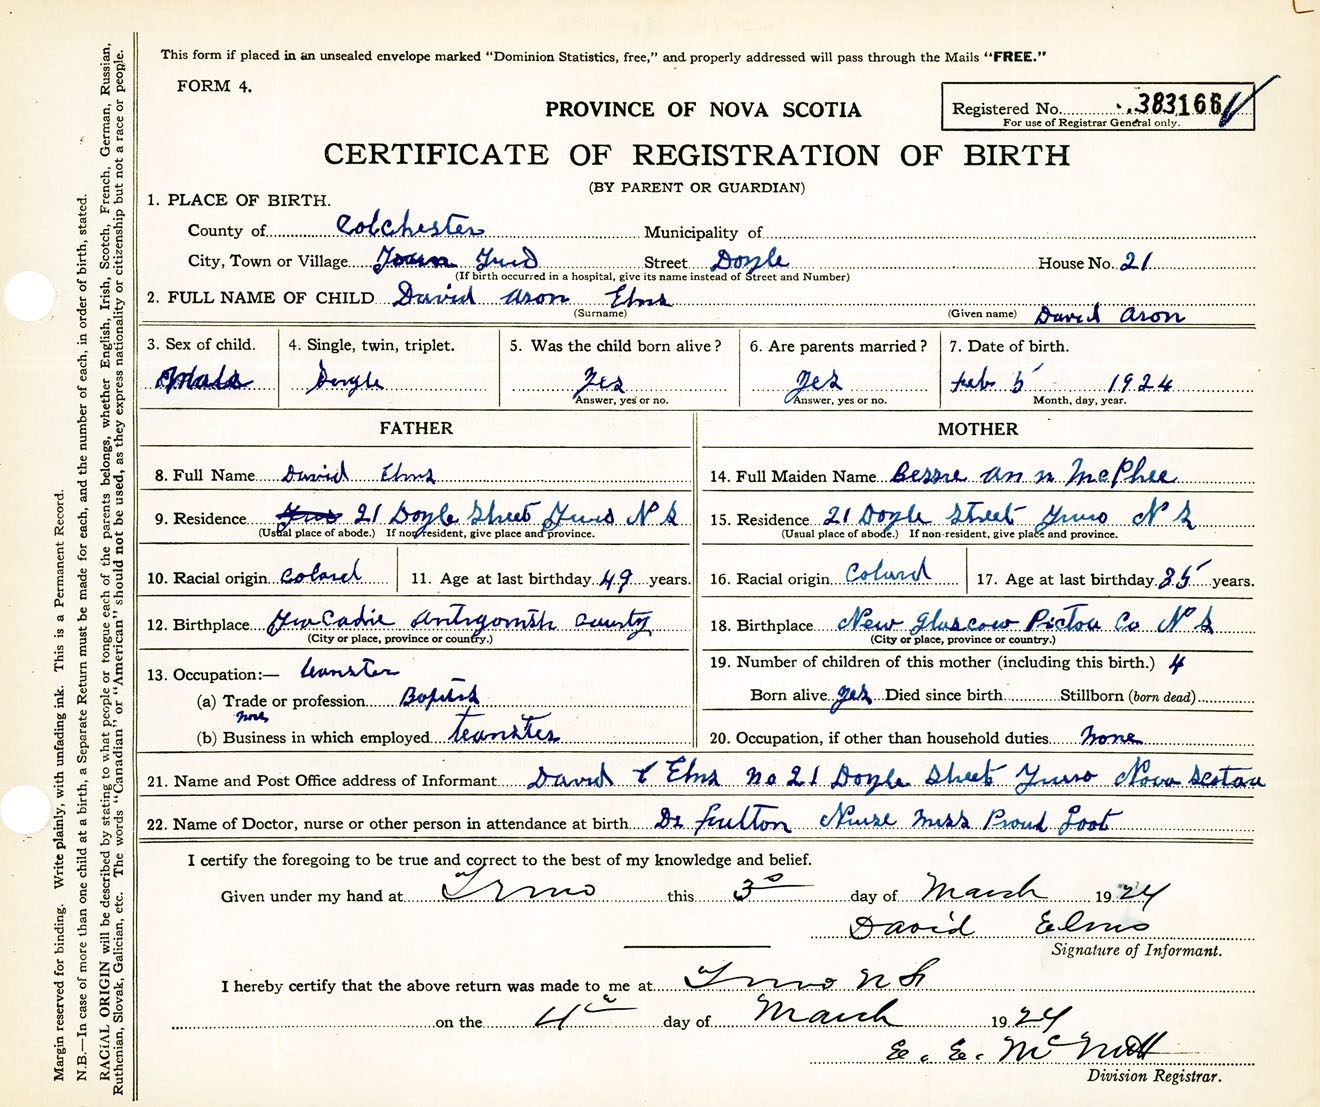 This form if placed in an unsealed envelope marked "Dominion Statistics, free," and properly addressed will pass through the Mails "FREE."
FORM 4.
Registered No. 383166
For use of Registrar General only.
PROVINCE OF NOVA SCOTIA
CERTIFICATE OF REGISTRATION OF BIRTH
(BY PARENT OR GUARDIAN)
1. PLACE OF BIRTH.
County of Colchester Municipality of
City, Town or Village Street Doyle House No. 21
(If birth occurred in a hospital, give its name instead of Street and Number)
2. FULL NAME OF CHILD David Aron Elms
(Surname) (Given name) David Aron
3. Sex of child. 4. Single, twin, triplet. 5. Was the child born alive? 6. Are parents married? 7. Date of birth.
Male Single Yes Yes Feb 5 1924
Answer, yes or no. Answer, yes or no. Month, day, year.
FATHER
8. Full Name David Elms
9. Residence 21 Doyle Street N S
(Usual place of abode.) If non-resident, give place and province.
10. Racial origin Colard 11. Age at last birthday 49 years.
12. Birthplace county
(City or place, province or country.)
13. Occupation:— teamster
(a) Trade or profession Baptist
none
(b) Business in which employed teamster
MOTHER
14. Full Maiden Name Bessie Ann McPhee
15. Residence 21 Doyle Street Truro N S
(Usual place of abode.) If non-resident, give place and province.
16. Racial origin Colard 17. Age at last birthday 35 years.
18. Birthplace New Glascow Pictou Co N S
(City or place, province or country.)
19. Number of children of this mother (including this birth.) 4
Born alive yes Died since birth Stillborn (born dead)
20. Occupation, if other than household duties none
21. Name and Post Office address of Informant David Elms No 21 Doyle Street Truro Nova
22. Name of Doctor, nurse or other person in attendance at birth Dr Fulton Nurse Miss Proud Foot
I certify the foregoing to be true and correct to the best of my knowledge and belief.
Given under my hand at Truro this 3rd day of March 1924
David Elms
Signature of Informant.
I hereby certify that the above return was made to me at Truro N S
on the 4th day of March 1924
E. E. McNutt
Division Registrar.
Margin reserved for binding. Write plainly, with unfading ink. This is a Permanent Record.
N.B.—In case of more than one child at a birth, a Separate Return must be made for each, and the number of each, in order of birth, stated.
RACIAL ORIGIN will be described by stating to what people or tongue each of the parents belongs, whether English, Irish, Scotch, French, German, Russian,
Ruthenian, Slovak, Galician, etc. The words "Canadian" or "American" should not be used, as they express nationality or citizenship but not a race or people.